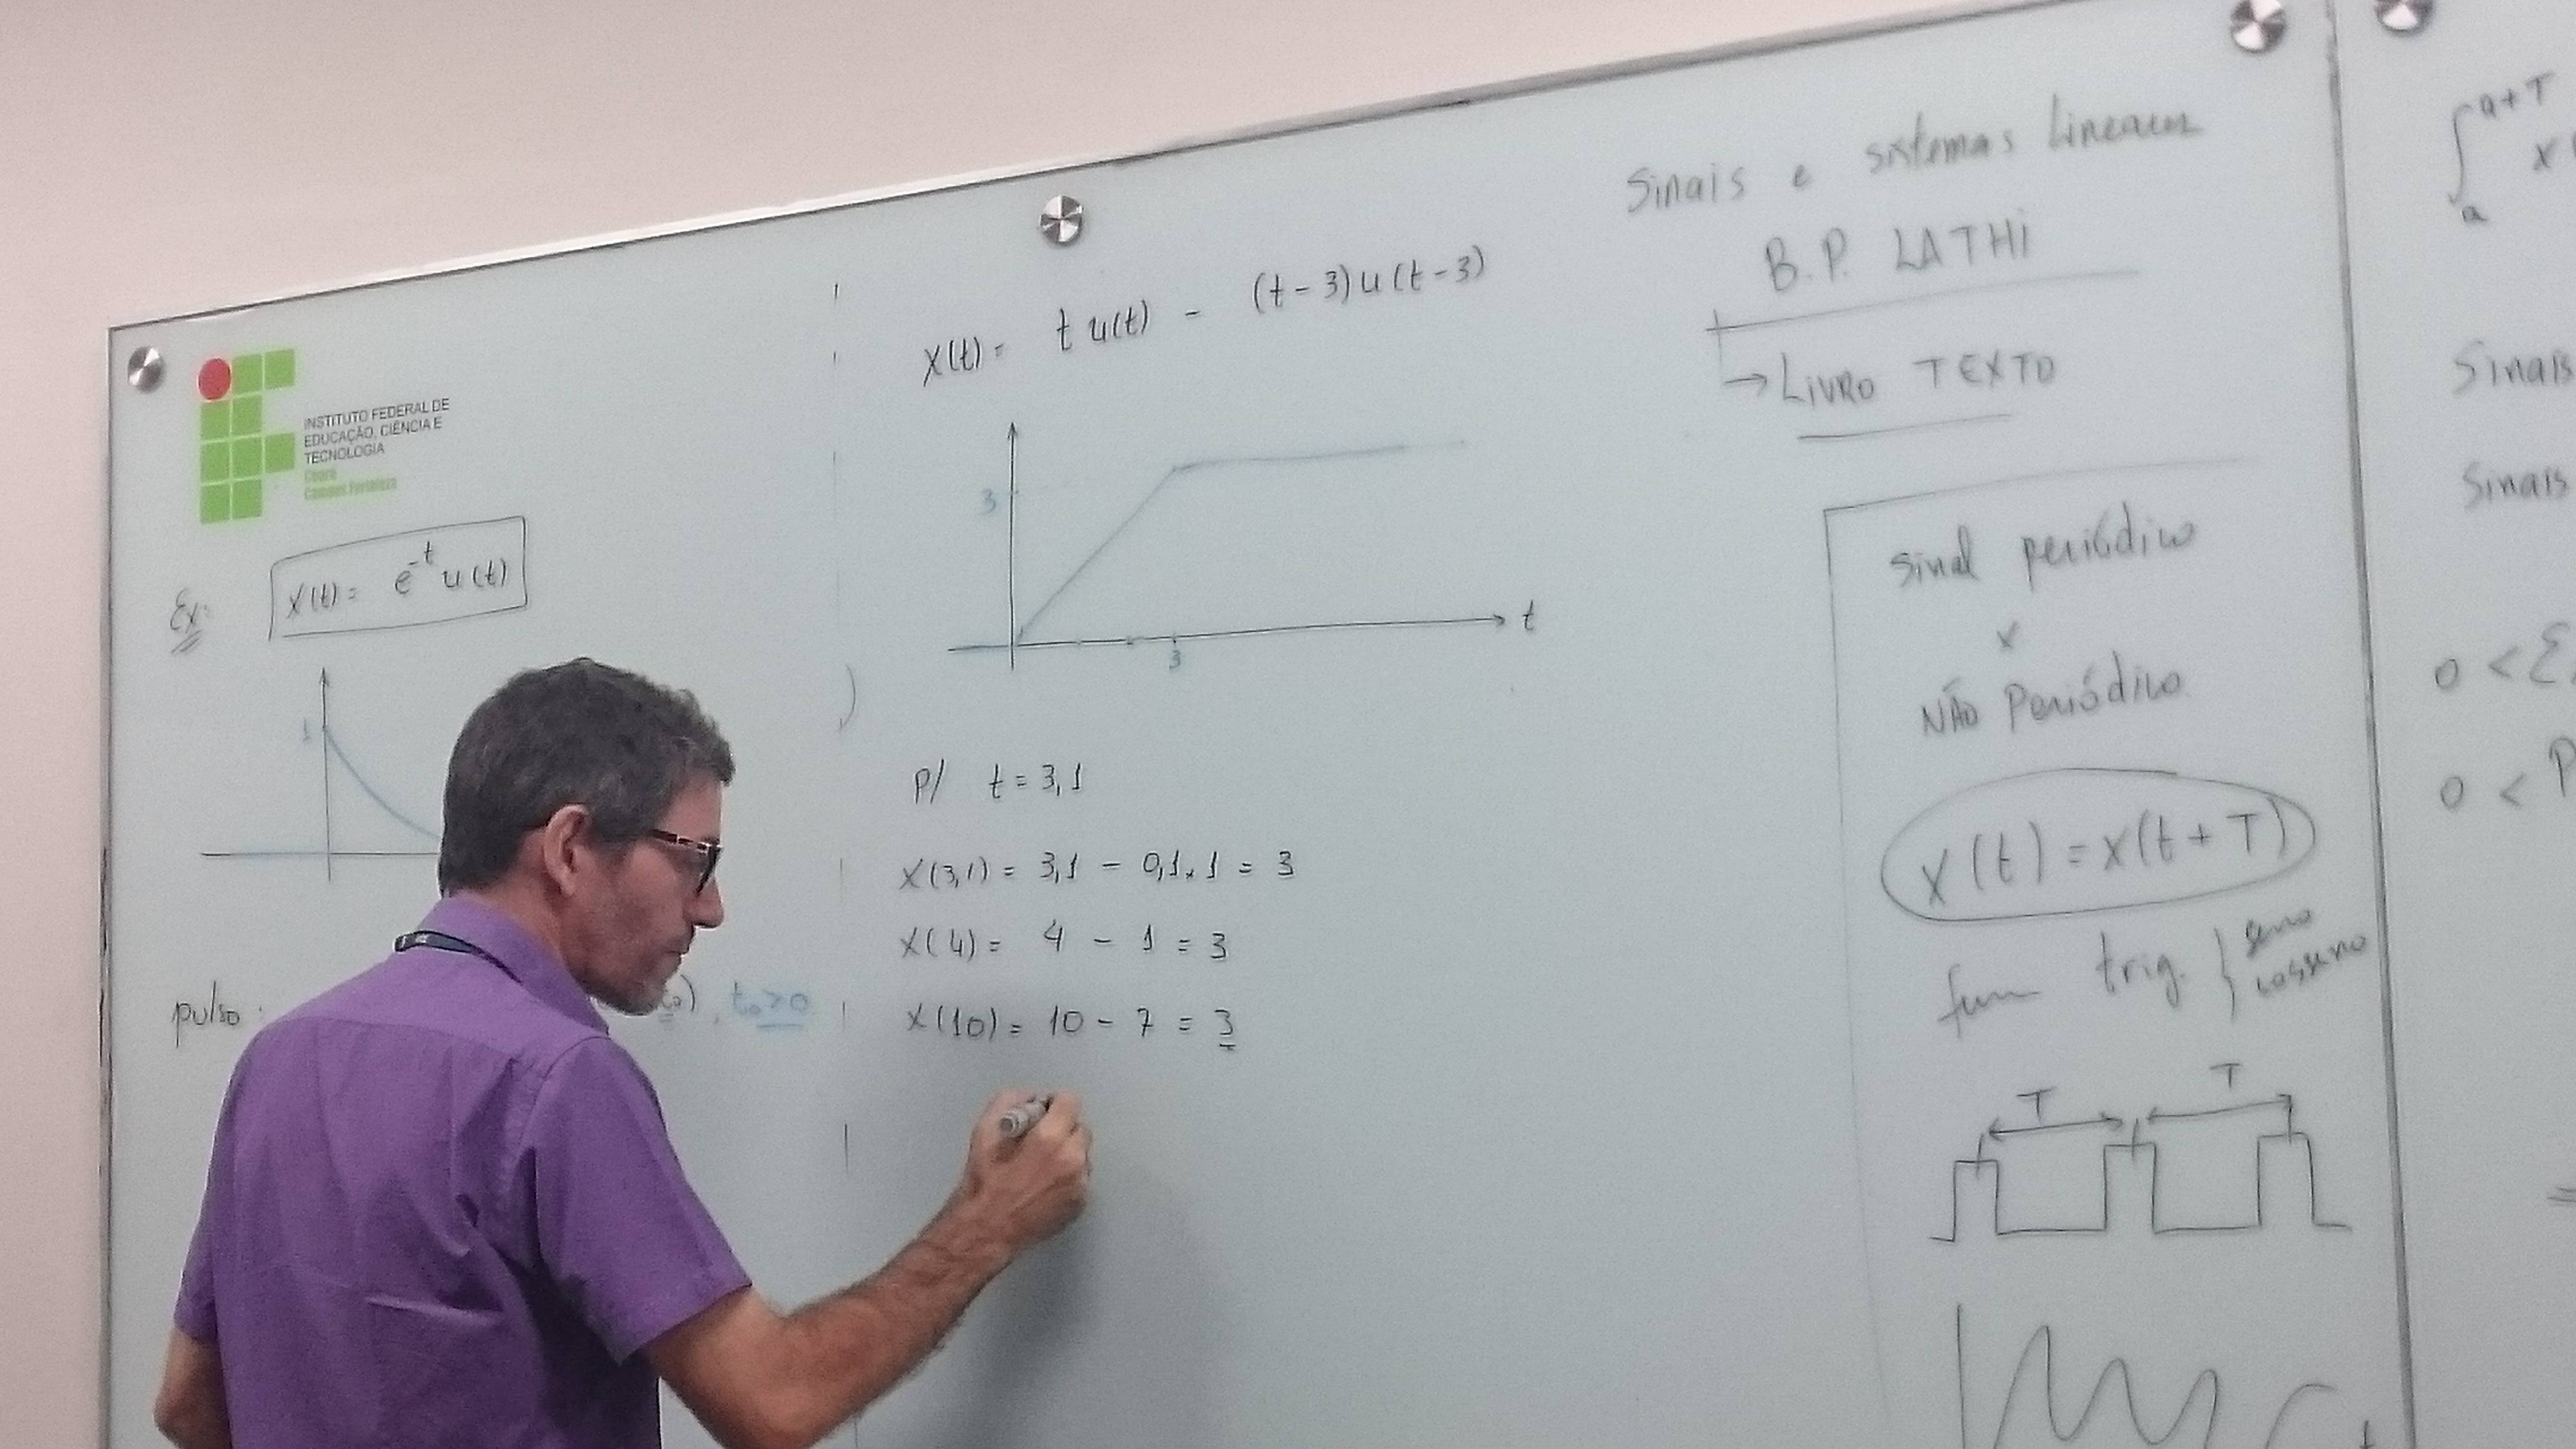 INSTITUTO FEDERAL DE
EDUCAÇÃO, CIÊNCIA E
TECNOLOGIA
Ceará
Campus Fortaleza
Ex:
x(t) = e^-t u(t)
1
pulso:
, t₀>0
x(t) = t u(t) - (t-3)u(t-3)
3
3
t
p/ t = 3,1
x(3,1) = 3,1 - 0,1 x 1 = 3
x(4) = 4 - 1 = 3
x(10) = 10 - 7 = 3
Sinais e sistemas Lineares
B.P. LATHi
→ LiVRO TEXTO
Sinal periódico
x
NÃO Periódico
x(t) = x(t+T)
trig. } seno
cosseno
T
T
t
a+T
∫ x(
a
Sinais
Sinais
0 < E
0 < P
=